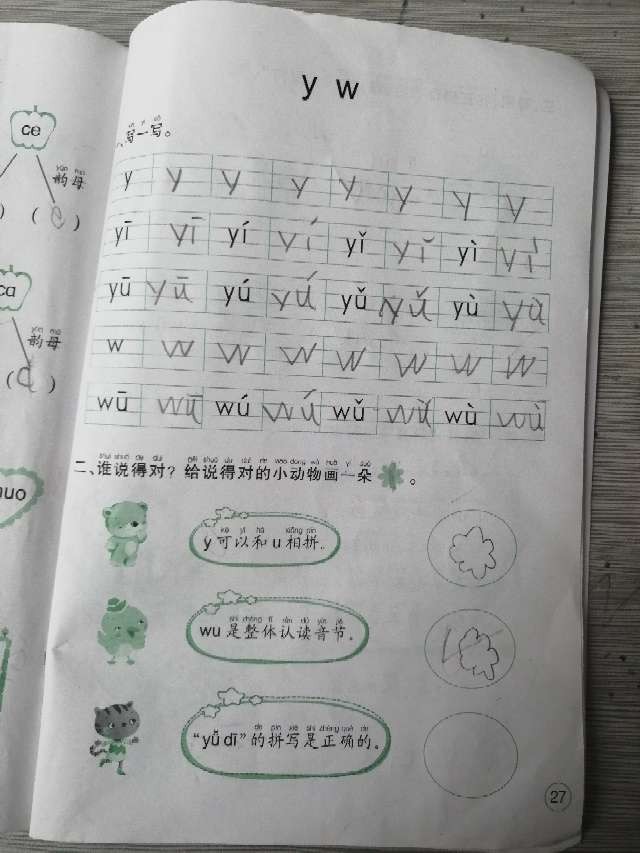 ce
韵母
( ) ( e )
ca
韵母
( a )
huo
y w
一、写一写。
y y y y y y y y
yī yī yí yí yǐ yǐ yì yì
yū yū yú yú yǔ yǔ yù yù
w w w w w w w w
wū wū wú wú wǔ wǔ wù wù
shuí shuō de duì gěi shuō de duì de xiǎo dòng wù huà yì duǒ
二、谁说得对？给说得对的小动物画一朵 。
kě yǐ hé xiāng pīn
y 可以和 u 相拼。
shì zhěng tǐ rèn dú yīn jié
wu 是整体认读音节。
de pīn xiě shì zhèng què de
“yǚ dī”的拼写是正确的。
27